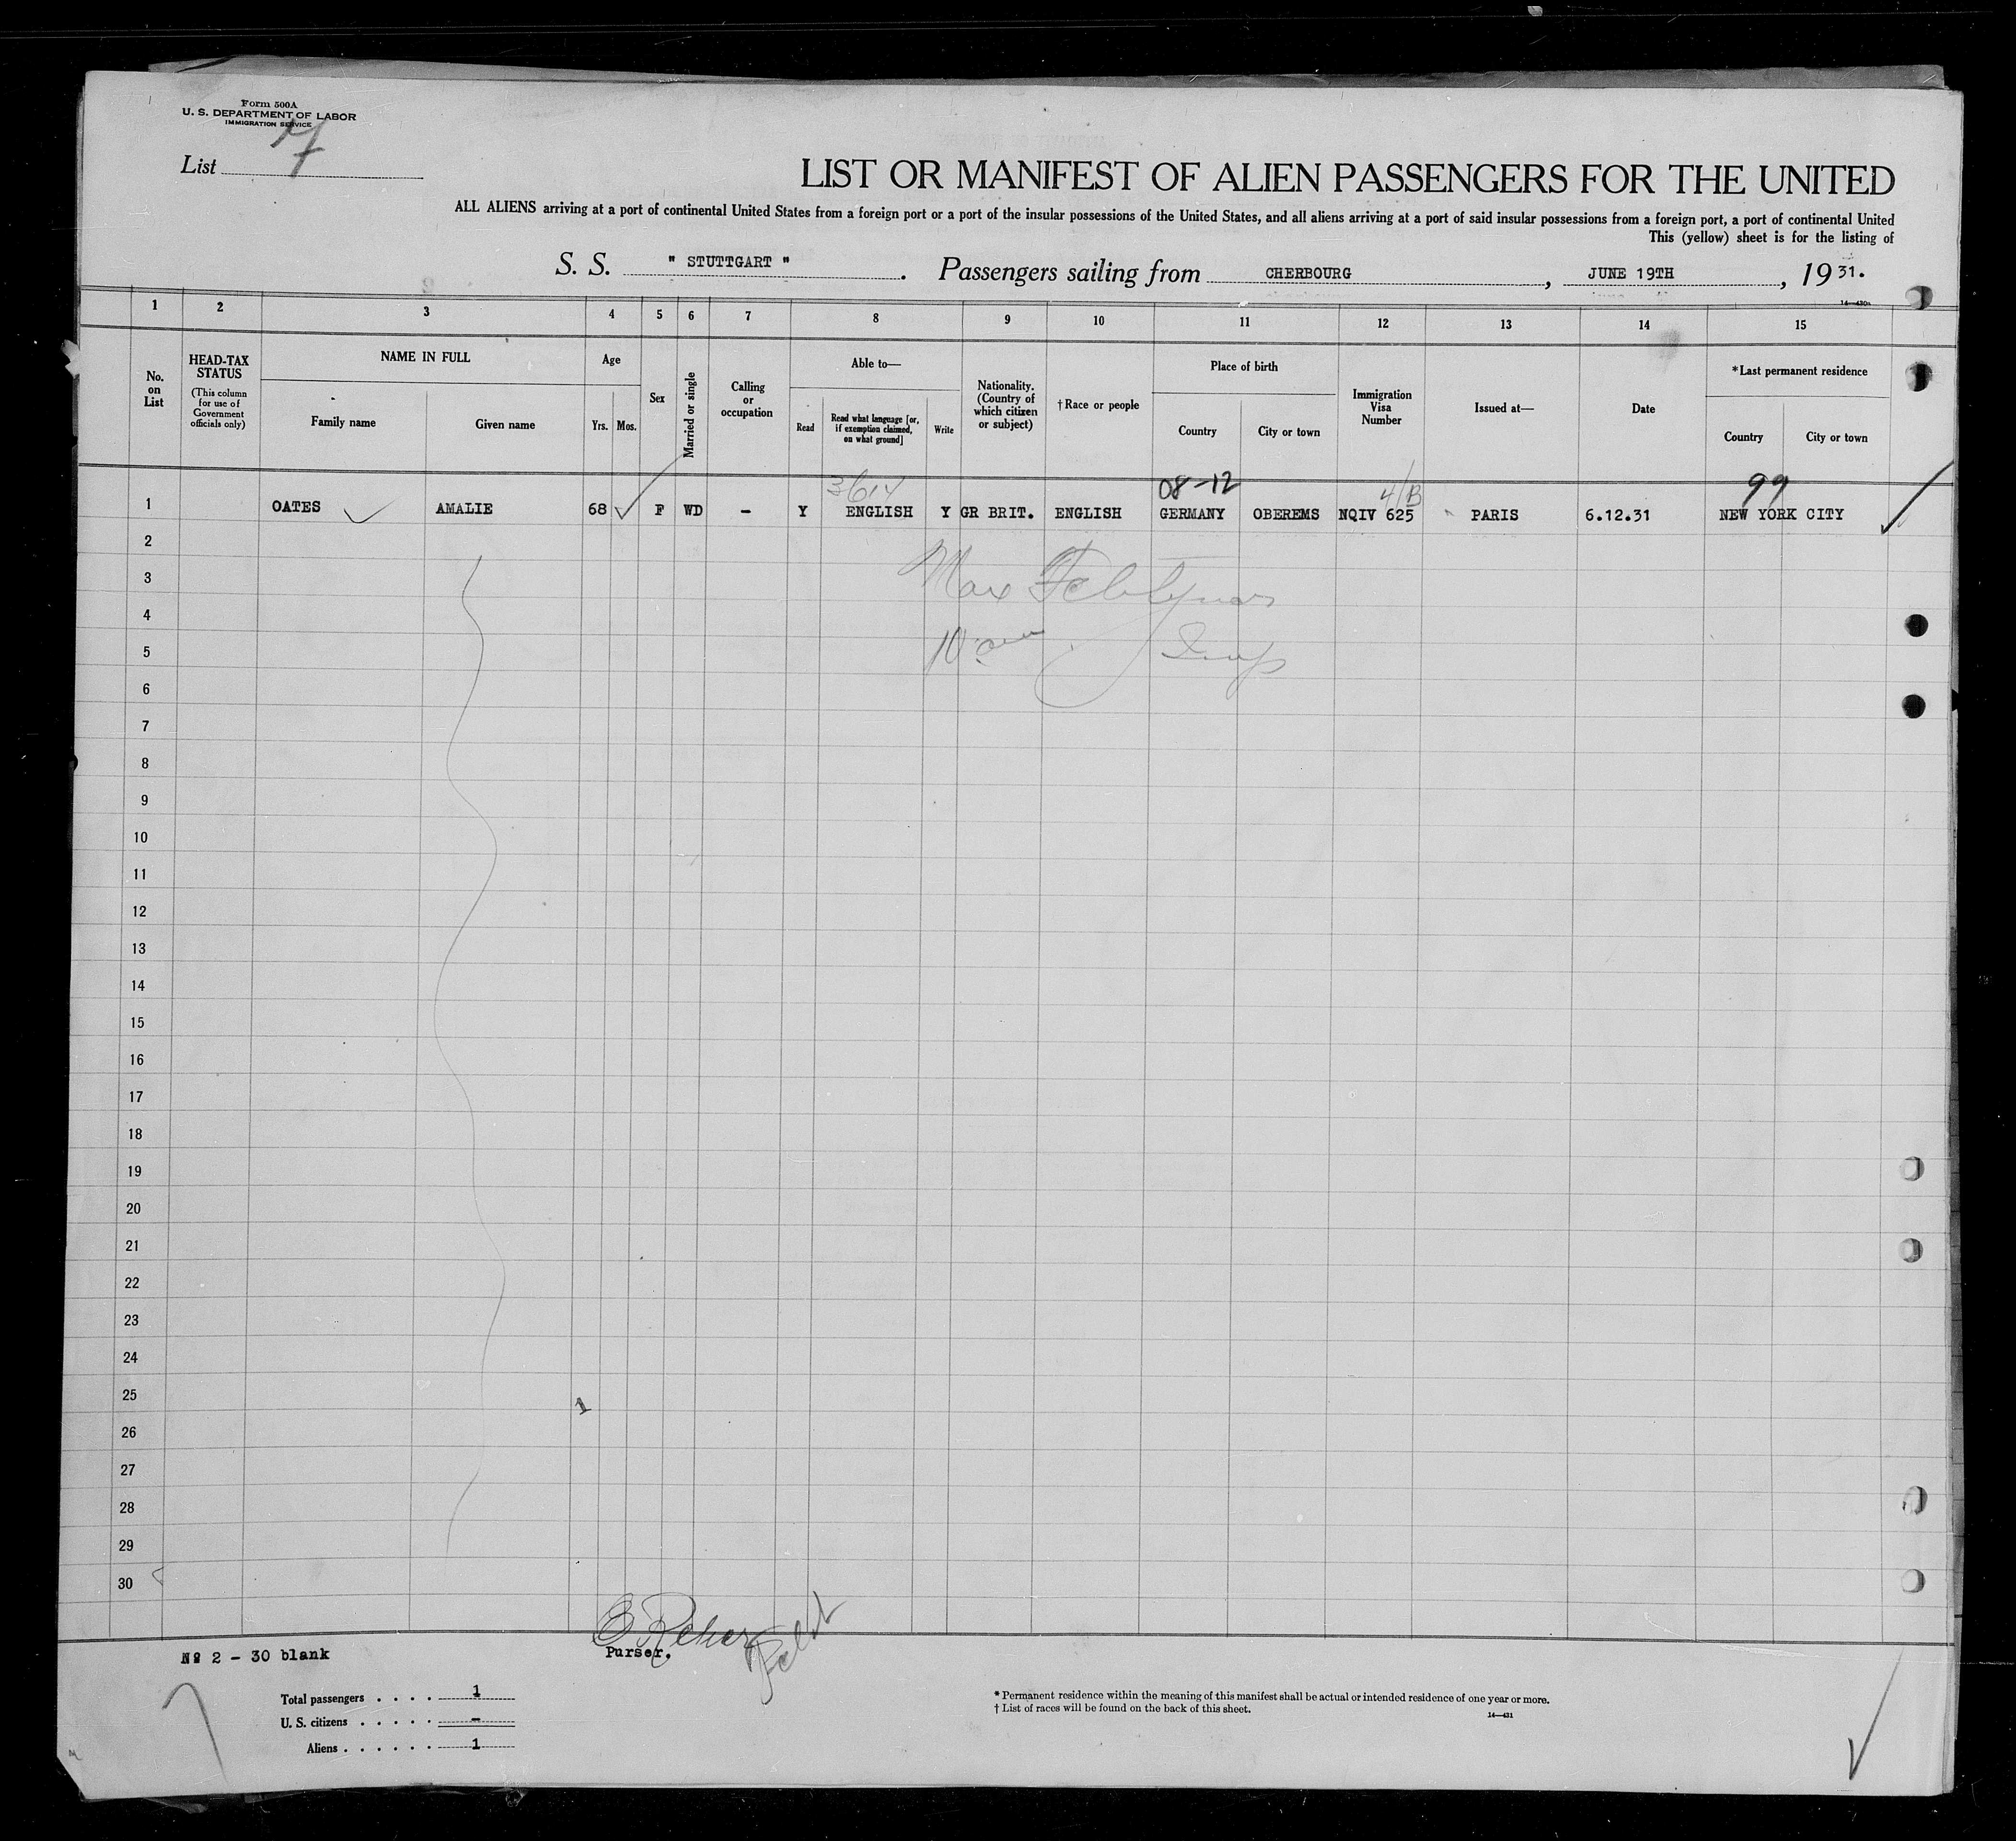 Form 500A
U. S. DEPARTMENT OF LABOR
IMMIGRATION SERVICE
List 7
LIST OR MANIFEST OF ALIEN PASSENGERS FOR THE UNITED
ALL ALIENS arriving at a port of continental United States from a foreign port or a port of the insular possessions of the United States, and all aliens arriving at a port of said insular possessions from a foreign port, a port of continental United
This (yellow) sheet is for the listing of
S. S. " STUTTGART ". Passengers sailing from CHERBOURG, JUNE 19TH, 1931.
1 2 3 4 5 6 7 8 9 10 11 12 13 14 15
No. on List
HEAD-TAX STATUS
(This column for use of Government officials only)
NAME IN FULL
Family name
Given name
Age
Yrs. Mos.
Sex
Married or single
Calling or occupation
Able to—
Read
Read what language [or, if exemption claimed, on what ground]
Write
Nationality. (Country of which citizen or subject)
† Race or people
Place of birth
Country
City or town
Immigration Visa Number
Issued at—
Date
*Last permanent residence
Country
City or town
08-12
99
1 OATES AMALIE 68 F WD - Y ENGLISH Y GR BRIT. ENGLISH GERMANY OBEREMS NQIV 625 PARIS 6.12.31 NEW YORK CITY
2
3
4
5
6
7
8
9
10
11
12
13
14
15
16
17
18
19
20
21
22
23
24
25
26
27
28
29
30
Purser.
№ 2 - 30 blank
Total passengers . . . . 1
U. S. citizens . . . . . -
Aliens . . . . . . 1
* Permanent residence within the meaning of this manifest shall be actual or intended residence of one year or more.
† List of races will be found on the back of this sheet.
14—431